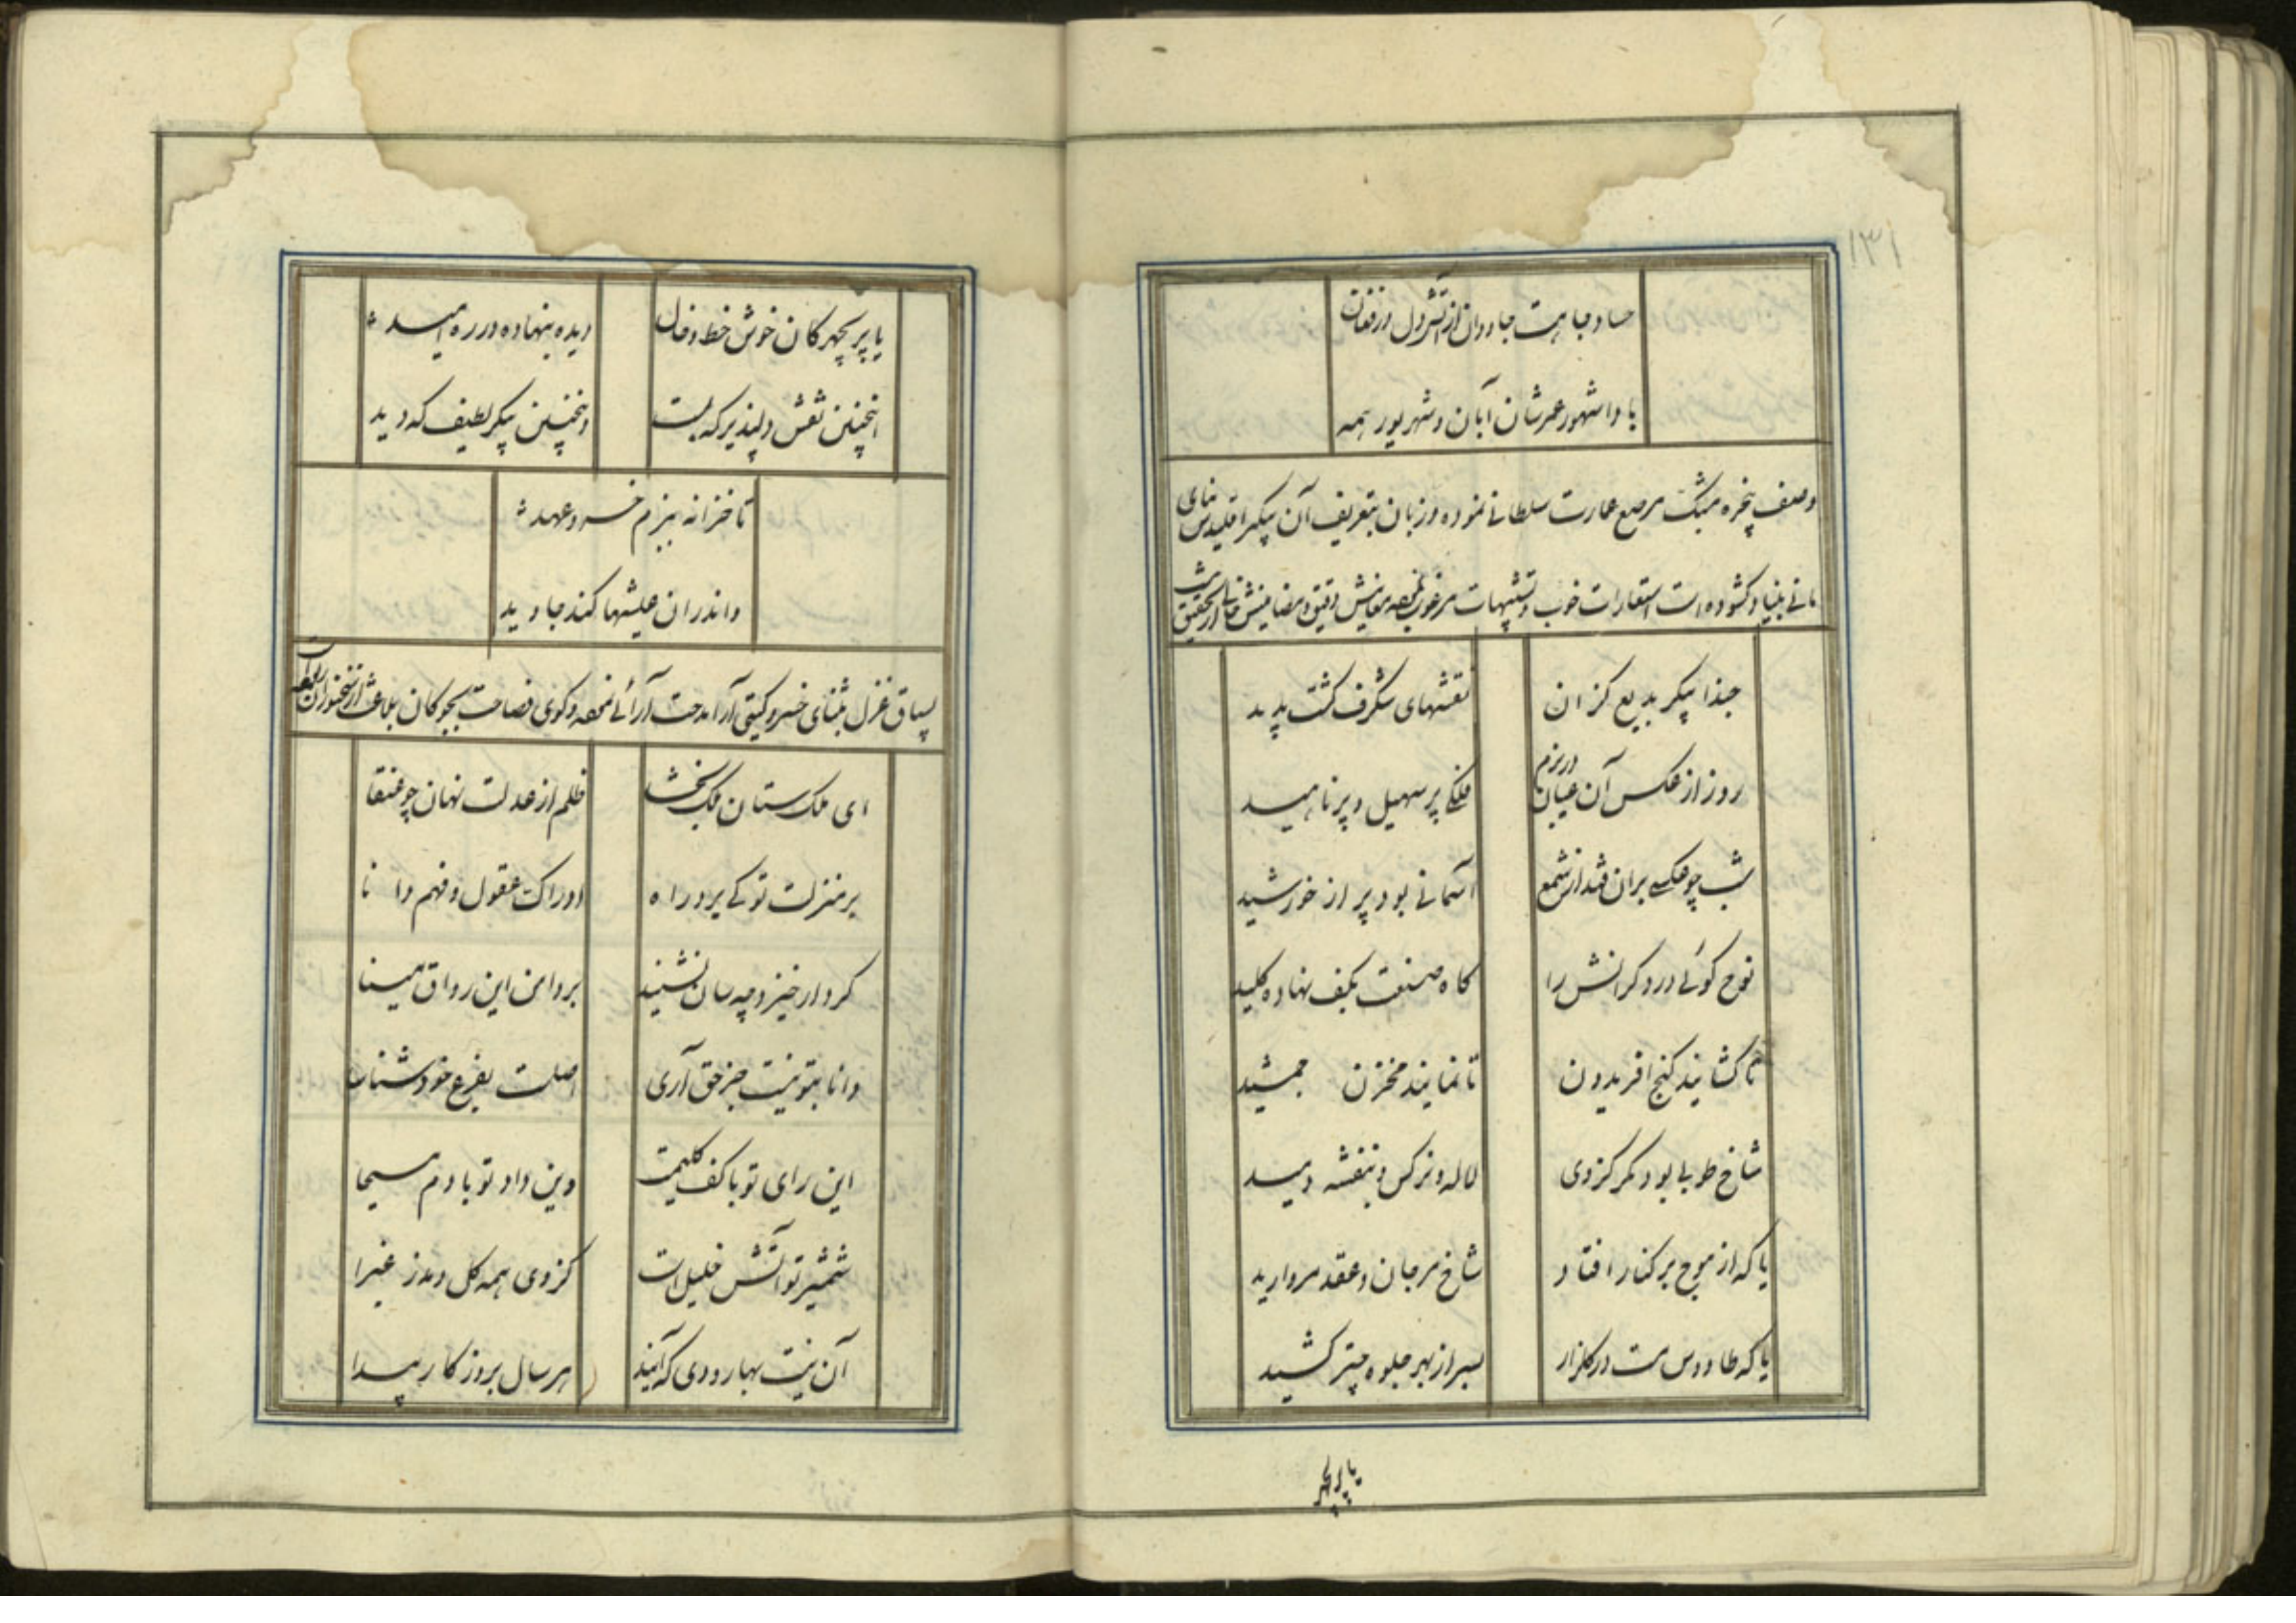 ۱۳۱
حساد جاهت جاودان از آتش دل در فغان
بادا شهور عمرشان آبان و شهریور همه
وصف پنجره مشبک مرصع عمارت سلطانی نموده و زبان بتعریف آن پیکر اقلیدس بنای
مانی بنیاد کشوده است استعارات خوب و تشبیهات مرغوب معانیش دقیق و مضامینش
حبذا پیکر بدیع کزان نقشهای شکرف کشت پدید
روز از عکس آن عیان در بزم فلکی پر سهیل و پر ناهید
شب چو عکسی بران فتد از شمع آسمانی بود پر از خورشید
نوح کوئی درودکرانش را کاه صنعت بکف نهاده کلید
تا کشایند کنج افریدون تا نمایند مخزن جمشید
شاخ طوبی بود مکر کزوی لاله و نرکس و بنفشه دمید
یا که از موج برکنار افتاد شاخ مرجان و عقد مروارید
یا که طاووس مست در کلزار بسر از بهر جلوه چتر کشید
یا پریچهر
یا پریچهرکان خوش خط و خال دیده بنهاده در ره امید
اینچنین نقش دلپذیر که بست واینچنین پیکر لطیف که دید
تا خزانه ببزم خسرو عهد
واندران عیشها کند جاوید
بسیاق غزل بثنای خسرو کیتی آرا مدحت آرائی نموده و کوی فصاحت بچوکان بلاغت از سخنوران
ای ملک ستان ملک بخشا ظلم از عدلت نهان چو عنقا
بر منزلت تو کی برد راه ادراک عقول و فهم دانا
کردار خیزد چه سان نشیند بر دامن این رواق مینا
دانا بتو نیست جز حق آری اصلت بفرع خود شناسا
این رای تو با کف کلیمت وین داد تو با دم مسیحا
شمشیر تو آتش خلیل است کزوی همه کل دمد ز غبرا
آن نیست بهار و دی که آیند هر سال بروزکار پیدا